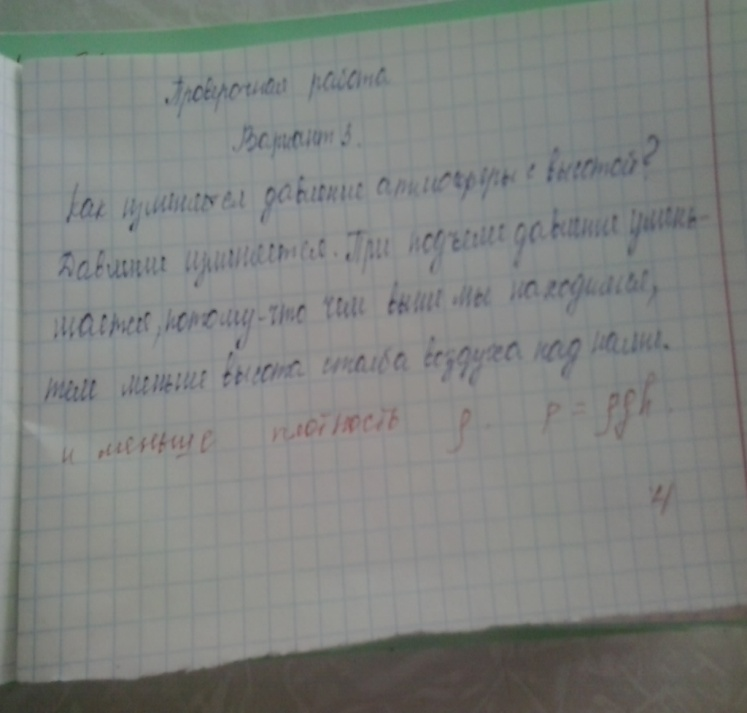 Проверочная работа
Вариант 3.
Как изменяется давление атмосферы с высотой?
Давление изменяется. При подъеме давление умень-
шается, потому-что чем выше мы находимся,
тем меньше высота столба воздуха над нами.
и меньше плотность ρ. p = ρgh.
4